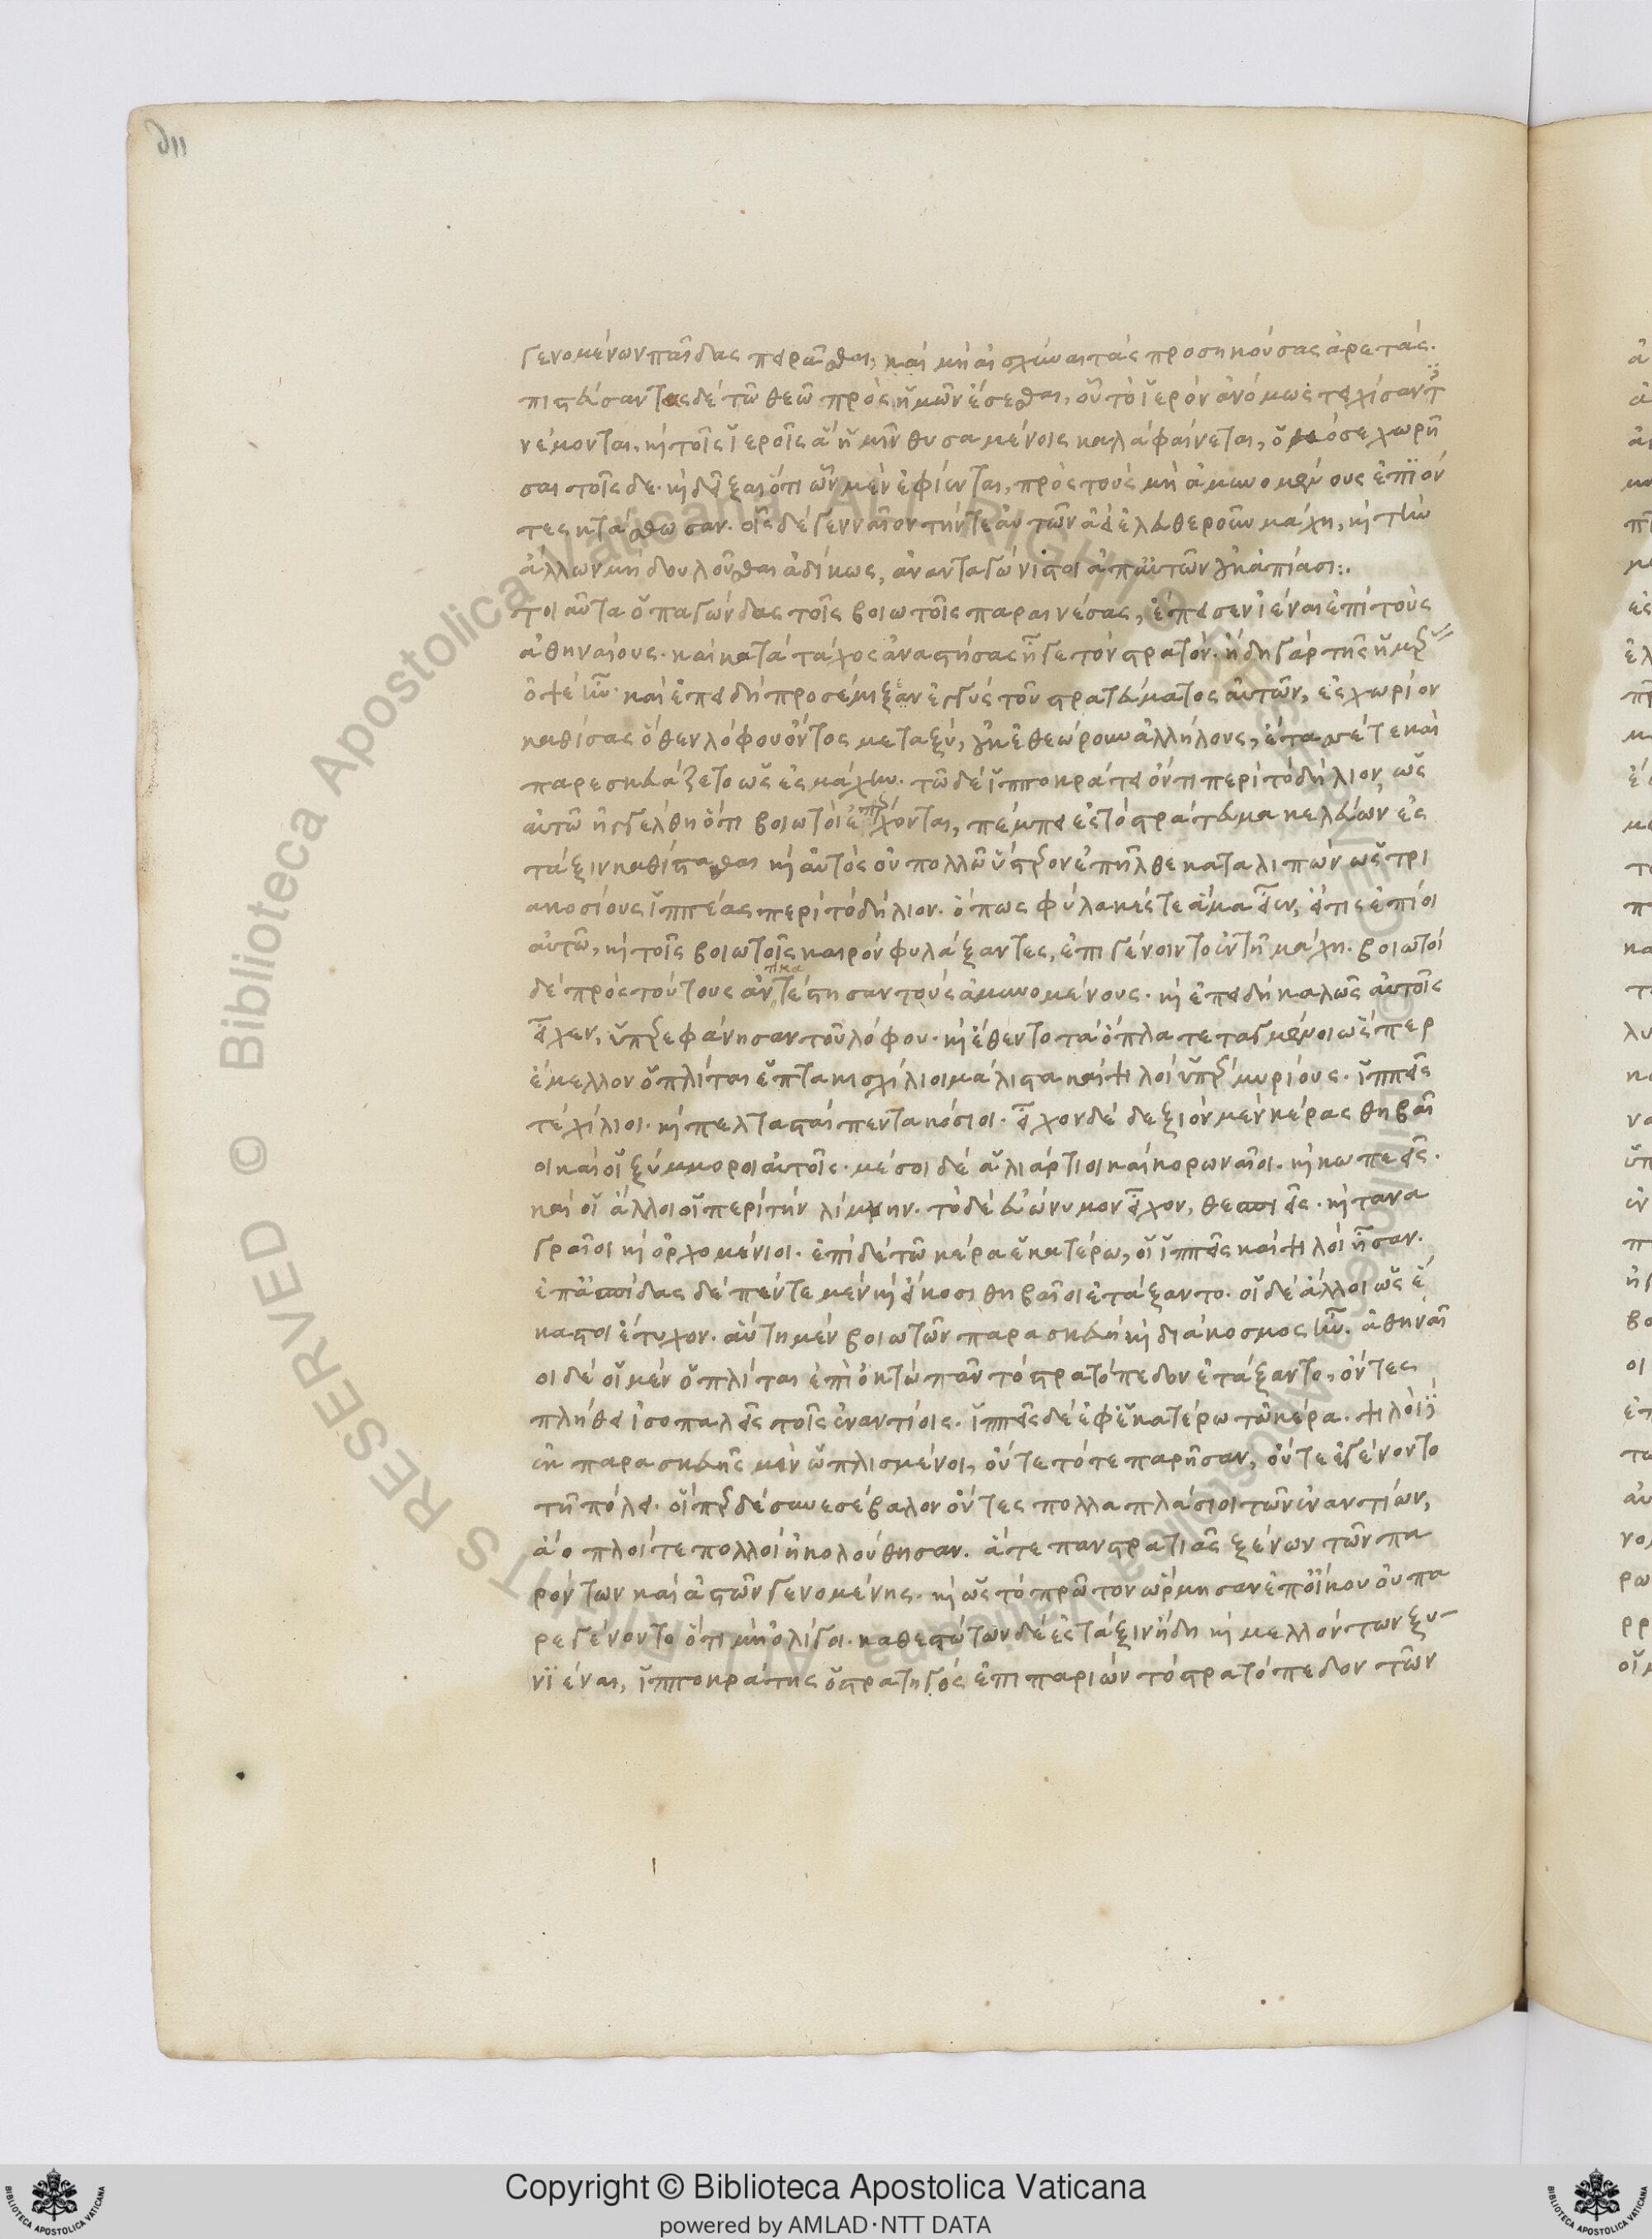 γενομένων παῖδας πειρᾶσθαι, καὶ μὴ αἰσχῦναι τὰς προσηκούσας ἀρετάς.
πιστεύσαντας δὲ τῶ θεῶ πρὸς ἡμῶν ἔσεσθαι, οὗ τὸ ἱερὸν ἀνόμως τειχίσαντες
νέμονται, καὶ τοῖς ἱεροῖς ἃ ἡμῖν θυσαμένοις καλὰ φαίνεται, ὁμόσε χωρῆ
σαι τοῖσδε. καὶ δεῖξαι ὅτι ὧν μὲν ἐφίενται, πρὸς τοὺς μὴ ἀμυνομένους ἐπϊόν
τες κτάσθωσαν. οἷς δὲ γενναῖον τήν τε αὑτῶν ἀεὶ ἐλευθεροῦν μάχη, καὶ τὴν
ἄλλων μὴ δουλοῦσθαι ἀδίκως, ἀνανταγώνιστοι ἀπ' αὐτῶν οὐκ ἀπίασι:.
τοιαῦτα ὁ παγώνδας τοῖς βοιωτοῖς παραινέσας, ἔπεισεν ἰέναι ἐπὶ τοὺς
ἀθηναίους. καὶ κατὰ τάχος ἀναστήσας ἦγε τὸν στρατόν. ἤδη γὰρ τῆς ἡμέρας
ὀψὲ ἦν. καὶ ἐπειδὴ προσέμιξαν ἐγγὺς τοῦ στρατεύματος αὐτῶν, ἐς χωρίον
καθίσας ὅθεν λόφου ὄντος μεταξὺ, οὐκ ἐθεώρουν ἀλλήλους, ἔτασσέ τε καὶ
παρεσκευάζετο ὡς ἐς μάχην. τῶ δὲ ἱπποκράτει ὄντι περὶ τὸ δήλιον, ὡς
αὐτῶ ἠγγέλθη ὅτι βοιωτοὶ ἐπέρχονται, πέμπει ἐς τὸ στράτευμα κελεύων ἐς
τάξιν καθίστασθαι καὶ αὐτὸς οὐ πολλῶ ὕστερον ἐπῆλθε καταλιπὼν ὡς τρι
ακοσίους ἱππέας περὶ τὸ δήλιον. ὅπως φύλακές τε ἅμα εἶεν, εἴ τις ἐπίοι
αὐτῶ, καὶ τοῖς βοιωτοῖς καιρὸν φυλάξαντες, ἐπιγένοιντο ἐν τῆ μάχη. βοιωτοὶ
δὲ πρὸς τούτους ἀντικατέστησαν τοὺς ἀμυνομένους. καὶ ἐπειδὴ καλῶς αὐτοῖς
εἶχεν, ὑπερεφάνησαν τοῦ λόφου. καὶ ἔθεντο τὰ ὅπλα τεταγμένοι ὥσπερ
ἔμελλον ὁπλῖται ἑπτακισχίλιοι μάλιστα καὶ ψιλοὶ ὑπὲρ μυρίους. ἱππεῖς
τὲ χίλιοι. καὶ πελτασταὶ πεντακόσιοι. εἶχον δὲ δεξιὸν μὲν κέρας θηβαῖ
οι καὶ οἱ ξύμμοροι αὐτοῖς. μέσοι δὲ ἁλιάρτιοι καὶ κορωναῖοι. καὶ κωπειεῖς.
καὶ οἱ ἄλλοι οἱ περὶ τὴν λίμνην. τὸ δὲ εὐώνυμον εἶχον, θεσπιεῖς. καὶ τανα
γραῖοι καὶ ὀρχομένιοι. ἐπὶ δὲ τῶ κέρα ἑκατέρω, οἱ ἱππεῖς καὶ ψιλοὶ ἦσαν.
ἐπ' ἀσπίδας δὲ πέντε μὲν καὶ εἴκοσι θηβαῖοι ἐτάξαντο. οἱ δὲ ἄλλοι ὡς ἕ
καστοι ἔτυχον. αὕτη μὲν βοιωτῶν παρασκευὴ καὶ διάκοσμος ἦν. ἀθηναῖ
οι δὲ οἱ μὲν ὁπλῖται ἐπὶ ὀκτὼ πᾶν τὸ στρατόπεδον ἐτάξαντο, ὄντες
πλήθει ἰσοπαλεῖς τοῖς ἐναντίοις. ἱππεῖς δὲ ἐφ' ἑκατέρω τῶ κέρα. ψιλοὶ δὲ
ἐκ παρασκευῆς μὲν ὡπλισμένοι, οὔτε τότε παρῆσαν, οὔτε ἐγένοντο
τῆ πόλει. οἵπερ δὲ συνεσέβαλον ὄντες πολλαπλάσιοι τῶν ἐναντίων,
ἄοπλοί τε πολλοὶ ἠκολούθησαν. ἅτε πανστρατιᾶς ξένων τῶν πα
ρόντων καὶ ἀστῶν γενομένης. καὶ ὡς τὸ πρῶτον ὥρμησαν ἐπ' οἴκου οὐ πα
ρεγένοντο ὅτι μὴ ὀλίγοι. καθεστώτων δὲ ἐς τάξιν ἤδη καὶ μελλόντων ξυ
νϊέναι, ἱπποκράτης ὁ στρατηγὸς ἐπιπαριὼν τὸ στρατόπεδον τῶν
Copyright © Biblioteca Apostolica Vaticana
powered by AMLAD·NTT DATA